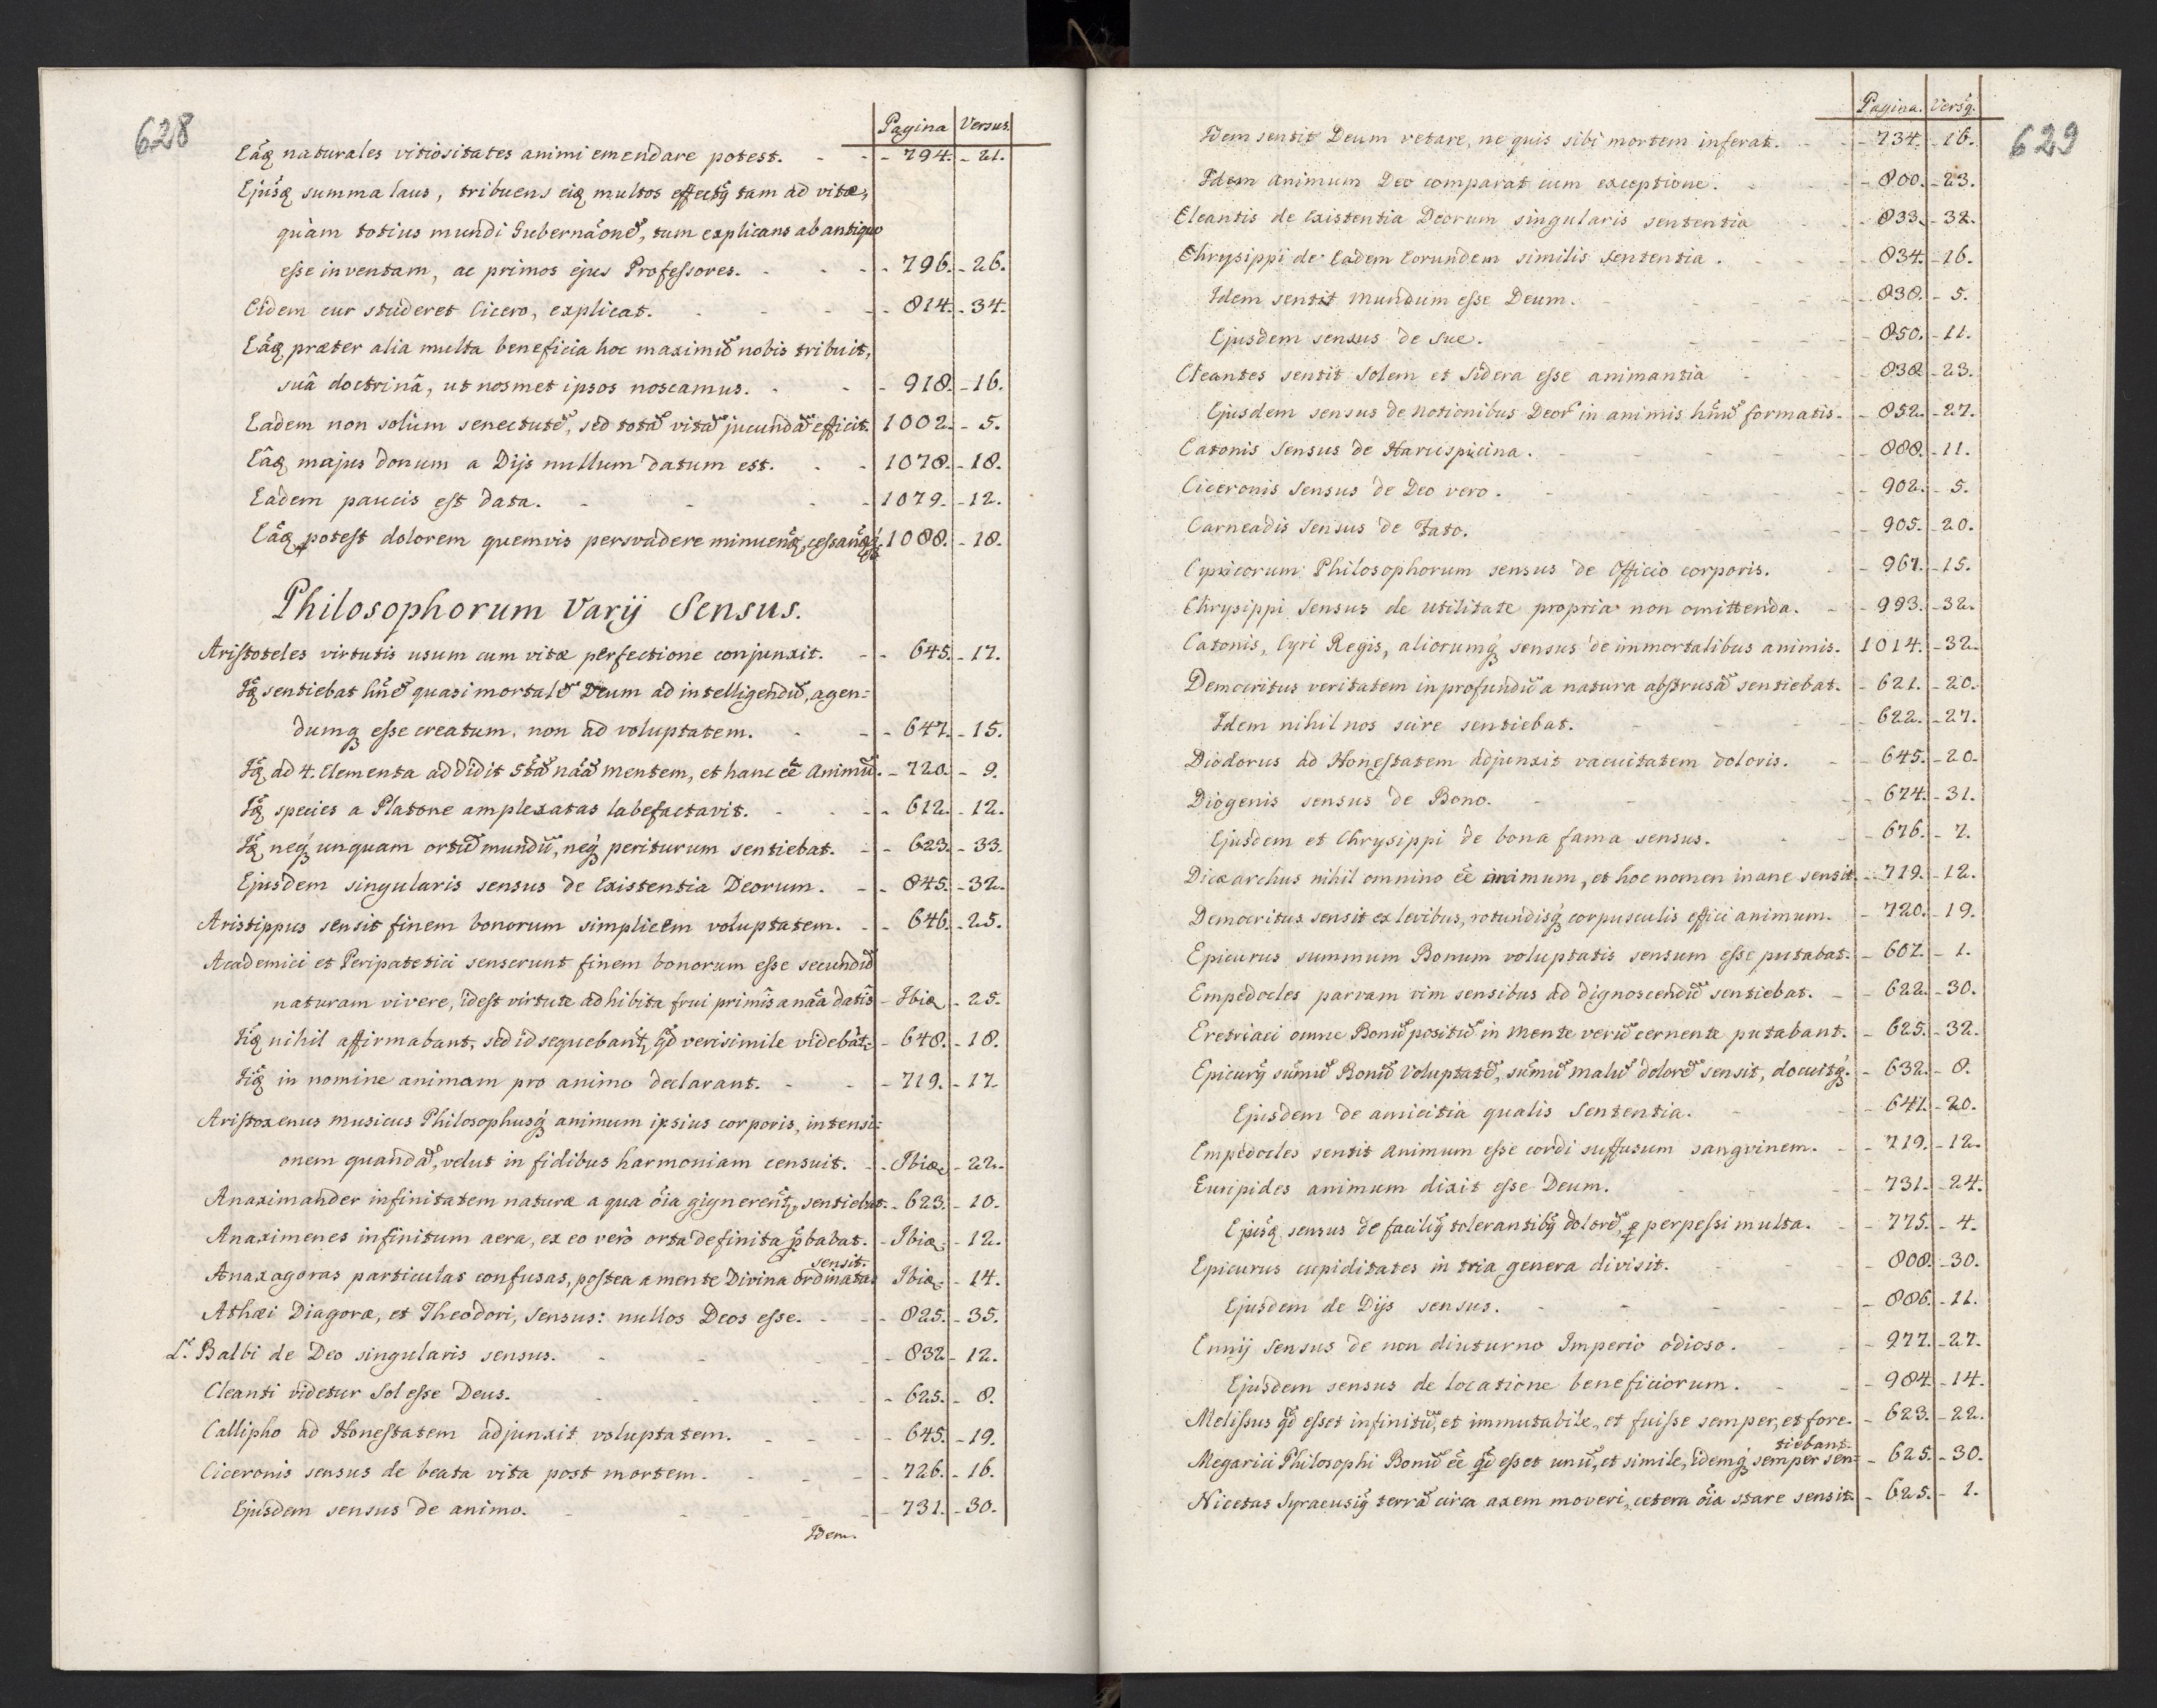 628
Pagina Versus.
Eâꝗ naturales vitiositates animi emendare potest. - - - 794. - 21.
Ejusꝗ summa laus, tribuens eiꝗ multos effectꝰ tam ad vitæ,
quàm totius mundi Gubernãonẽ, tum explicans ab antiquo
esse inventam, ac primos ejus Professores. - - - 796. - 26.
Eidem cur studeret Cicero, explicat. - - - 814. - 34.
Eâꝗ præter alia multa beneficia hoc maximũ nobis tribuit,
suâ doctrinâ, ut nosmet ipsos noscamus. - - - 918. - 16.
Eadem non solùm senectutẽ, sed totã vitã jucundã efficit. 1002. - 5.
Eâꝗ majus donum a Dijs nullum datum est. - - 1078. - 18.
Eadem paucis est data. - - - 1079. - 12.
Eâꝗ potest dolorem quemvis persvadere 1088. - 18.
Philosophorum Varij Sensus.
Aristoteles virtutis usum cum vitæ perfectione conjunxit. - - 645. - 17.
Iꝗ sentiebat hñẽ quasi mortalẽ Deum ad intelligendũ, agen=
dumꝗ esse creatum, non ad voluptatem. - - - 647. - 15.
Iꝗ ad 4. Elementa addidit 5tã nãã mentem, et hanc eẽ animũ. - 720. - 9.
Iꝗ species a Platone amplexatas labefactavit. - - - 612. - 12.
Iꝗ neqꝫ unquam ortũ mundũ, neqꝫ periturum sentiebat. - - 623. - 33.
Ejusdem singularis sensus de Existentia Deorum. - - 845. - 32.
Aristippus sensit finem bonorum simplicem voluptatem. - - 646. - 25.
Academici et Peripatetici senserunt finem bonorum esse secundũ
naturam vivere, idest virtute adhibita frui primis a nãa datis - Ibiꝗ - 25.
Iiꝗ nihil affirmabant, sed id sequebant, qd verisimile videbat - 648. - 18.
Iiꝗ in nomine animam pro animo declarant. - - - 719. - 17.
Aristoxenus musicus Philosophusqꝫ animum ipsius corporis, intensi=
onem quandã, velut in fidibus harmoniam censuit. - - Ibiꝗ - 22.
Anaximander infinitatem naturæ a qua õia gignerent, sentiebat. - 623. - 10.
Anaximenes infinitum aera, ex eo verò orta definita ꝓbabat. - Ibiꝗ - 12.
sensit.
Anaxagoras particulas confusas, postea a mente Divina ordinatas Ibiꝗ - 14.
Athæi Diagoræ, et Theodori, Sensus: nullos Deos esse. - - - 825. - 35.
L. Balbi de Deo singularis sensus. - - - - 832. - 12.
Cleanti videtur Sol esse Deus. - - - - 625. - 8.
Callipho ad Honestatem adjunxit voluptatem. - - - 645. - 19.
Ciceronis sensus de beata vita post mortem. - - - 726. - 16.
Ejusdem sensus de animo. - - - - 731. - 30.
Idem.
629
Pagina. Versꝰ.
Idem sentit Deum vetare, ne quis sibi mortem inferat. - - 734. - 16.
Idem animum Deo comparat cum exceptione. - - - 800. - 23.
Cleantis de Existentia Deorum singularis sententia - - - 833. - 32.
Chrysippi de Eadem Eorundem similis Sententia. - - - 834. - 16.
Idem sentit mundum esse Deum. - - - 838. - 5.
Ejusdem sensus de Sue. - - - 850. - 11.
Cleantes sentit Solem et Sidera esse animantia - - 838 - 23.
Ejusdem sensus de notionibus Deor in animis hñũ formatis. - 852. - 27.
Catonis Sensus de Haruspicina. - - - 888. - 11.
Ciceronis Sensus de Deo vero. - - - 902. - 5.
Carneadis Sensus de Fato. - - - 905. - 20.
Cynicorum Philosophorum sensus de Officio corporis. - - 967. - 15.
Chrysippi Sensus de utilitate propria non omittenda. - - 993. - 32.
Catonis, Cyri Regis, aliorumqꝫ sensus de immortalibus animis. 1014. - 32.
Democritus veritatem in profundũ a natura abstrusã sentiebat. - 621. - 20.
Idem nihil nos scire sentiebat. - - - 622. - 27.
Diodorus ad Honestatem adjunxit vacuitatem doloris. - - 645. - 20.
Diogenis sensus de Bono. - - - 674. - 31.
Ejusdem et Chrysippi de bona fama sensus. - - 676. - 7.
Dicæarchus nihil omnino eẽ animum, et hoc nomen inane sensit. - 719. - 12.
Democritus sensit ex levibus, rotundisqꝫ corpusculis effici animum. - 720. - 19.
Epicurus summum Bonum voluptatis sensum esse putabat. - 607. - 1.
Empedocles parvam vim sensibus ad dignoscendũ sentiebat. - - 622. - 30.
Eretriaci omne Bonũ positũ in mente verũ cernente putabant. - 625. - 32.
Epicurꝰ sũmũ Bonũ Voluptatẽ, sũmũ malũ dolorẽ sensit, docuitqꝫ. - 632. - 8.
Ejusdem de amicitia qualis Sententia. - - 641. - 20.
Empedocles sentit animum esse cordi suffusum sangvinem. - - 719. - 12.
Euripides animum dixit esse Deum. - - - 731. - 24.
Ejusꝗ sensus de faciliꝰ tolerantibꝰ dolorẽ, ꝗ perpessi multa. - - 775. - 4.
Epicurus cupiditates in tria genera divisit. - - - 808. - 30.
Ejusdem de Dijs sensus. - - - 886. - 11.
Ennij Sensus de non diuturno Imperio odioso. - - - 977. - 27.
Ejusdem sensus de locatione beneficiorum. - - 984. - 14.
Melissus qd esset infinitũ, et immutabile, et fuisse semper, et fore. - 623. - 22.
tiebant.
Megarici Philosophi Bonũ eẽ qd esset unũ, et simile, idemqꝫ semper sen= - 625. - 30.
Nicetas Syracusiꝰ terrã circa axem moveri, cetera õia stare sensit. - 625. - 1.